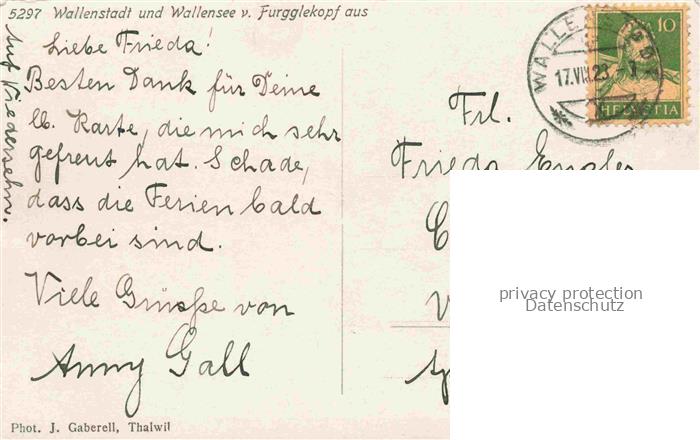 5297 Wallenstadt und Wallensee v. Furgglekopf aus
Liebe Frieda!
Besten Dank für Deine
lb. Karte, die mich sehr
gefreut hat. Schade,
dass die Ferien bald
vorbei sind.
Viele Grüsse von
Anny Gall
Auf Wiedersehn.
Phot. J. Gaberell, Thalwil
17.VIII.23
10
HELVETIA
Frl.
Frieda Engler
privacy protection
Datenschutz